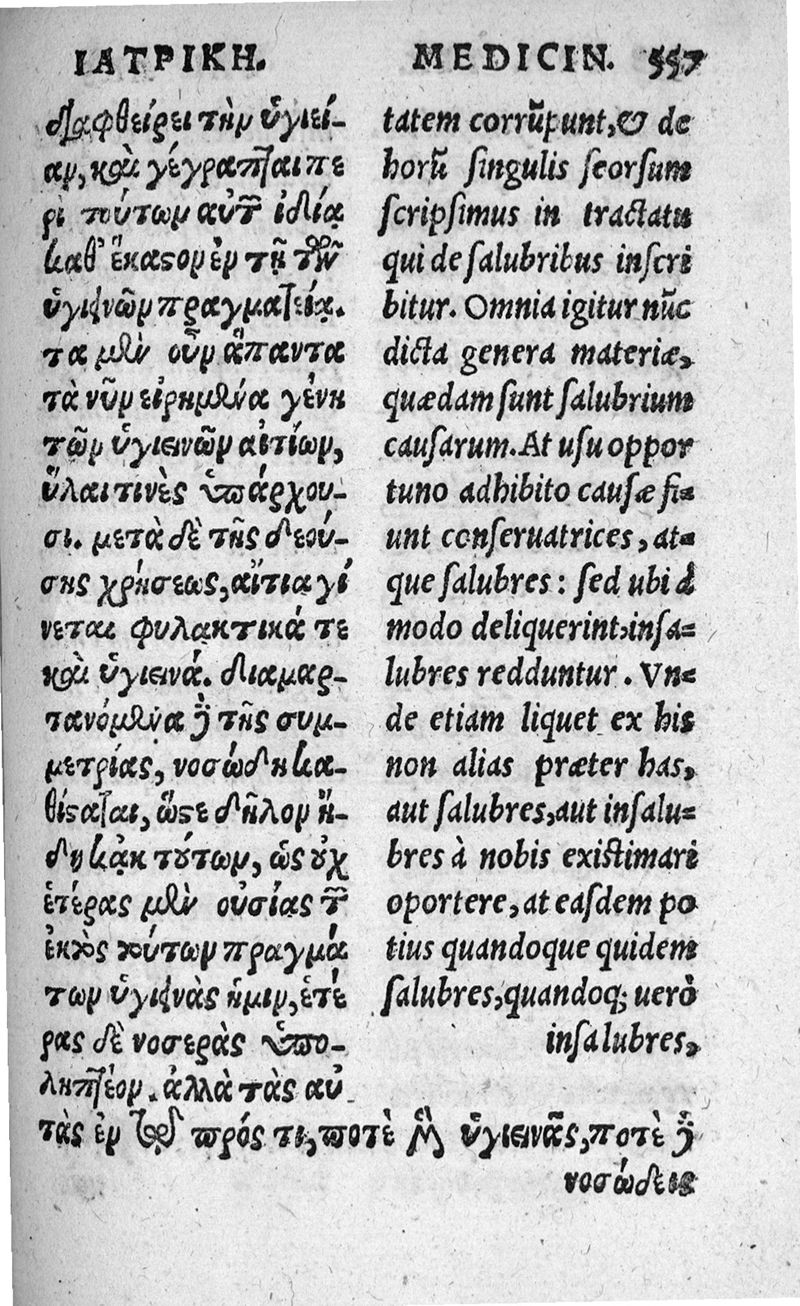 ΙΑΤΡΙΚΗ.
διαφθείρει τὴν ὑγιεί-
αν, καὶ γέγραπται πε
ρὶ τούτων αὐτῶν ἰδίᾳ
καθ' ἕκαστον ἐν τῇ τῶν
ὑγιεινῶν πραγματείᾳ.
τα μὲν οὖν ἅπαντα
τὰ νῦν εἰρημένα γένη
τῶν ὑγιεινῶν αἰτίων,
ὗλαι τινὲς ὑπάρχου-
σι. μετὰ δὲ τῆς δεού-
σης χρήσεως, αἴτια γί
νεται φυλακτικά τε
καὶ ὑγιεινά. διαμαρ-
τανόμενα δὲ τῆς συμ-
μετρίας, νοσώδη κα-
θίσταται, ὥστε δῆλον ἤ-
δη κἀκ τούτων, ὡς οὐχ
ἑτέρας μὲν οὐσίας τῶν
ἐκτὸς τούτων πραγμά
των ὑγιεινὰς ἡμιν, ἑτέ
ρας δὲ νοσερὰς ὑπο-
ληπτέον. ἀλλὰ τὰς αὐ
τὰς ἐν τῷ πρός τι, ποτὲ μὲν ὑγιεινὰς, ποτὲ δὲ
νοσώδεις
MEDICIN. 557
tatem corrũpunt, & de
horũ singulis seorsum
scripsimus in tractatu
qui de salubribus inscri
bitur. Omnia igitur nũc
dicta genera materiæ,
quædam sunt salubrium
causarum. At usu oppor
tuno adhibito causæ fi-
unt conseruatrices, at-
que salubres: sed ubi à
modo deliquerint, insa-
lubres redduntur. Vn-
de etiam liquet ex his
non alias præter has,
aut salubres, aut insalu-
bres à nobis existimari
oportere, at easdem po
tius quandoque quidem
salubres, quandoq; uerò
insalubres,